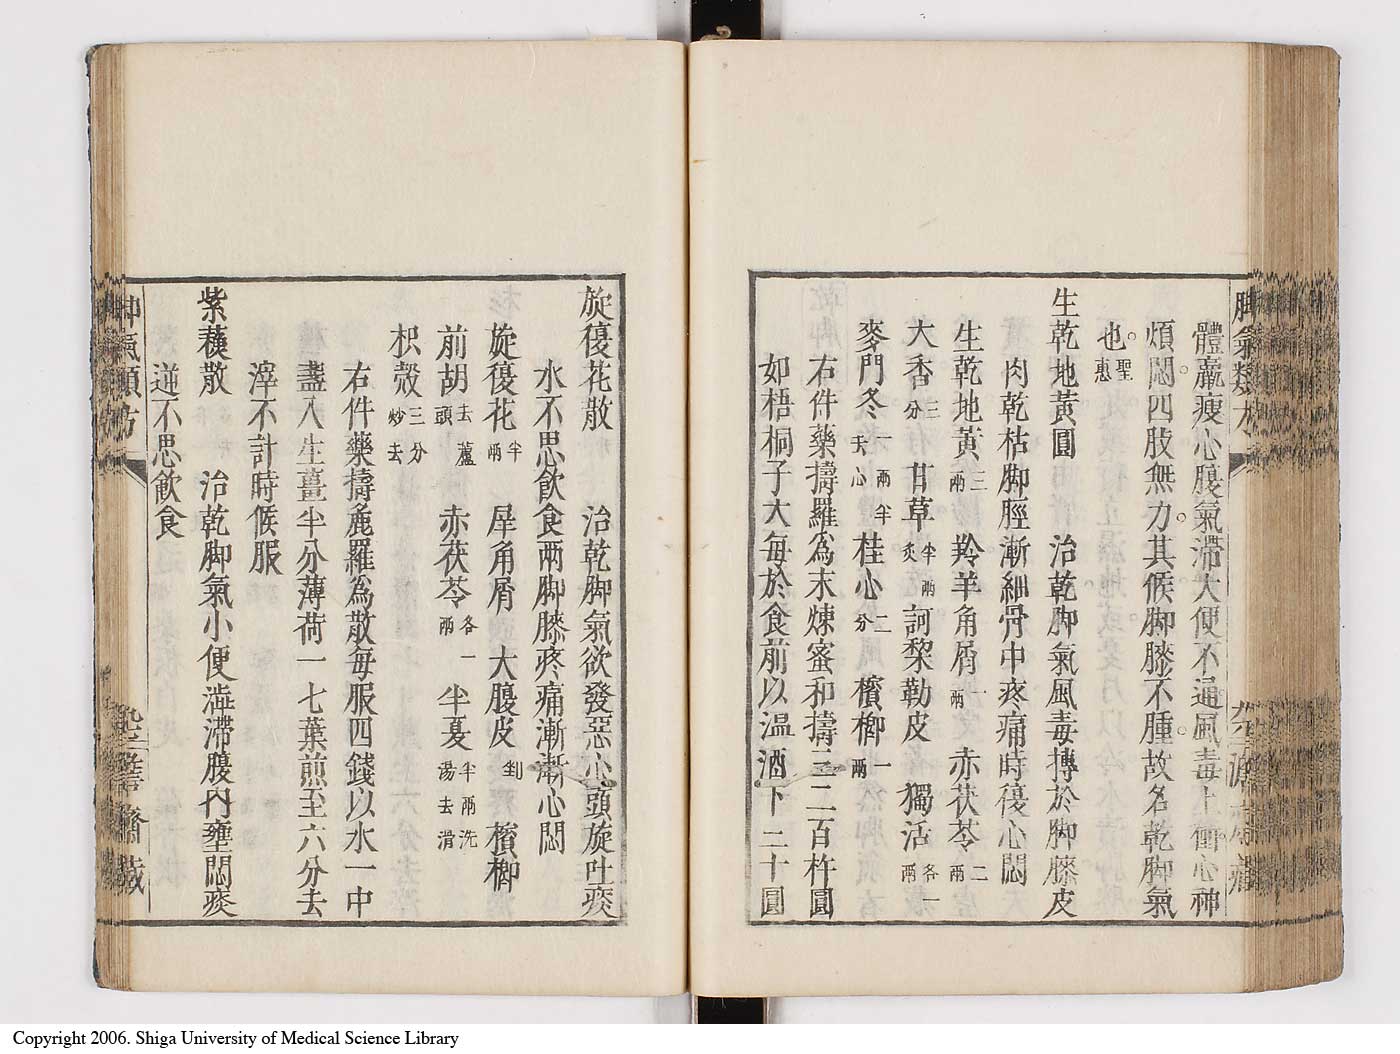 體羸瘦心腹氣滯大便不通風毒上衝心神
煩悶四肢無力其候脚膝不腫故名乾脚氣
也聖惠
生乾地黃圓　治乾脚氣風毒搏於脚膝皮
肉乾枯脚脛漸細骨中疼痛時復心悶
生乾地黃三兩　羚羊角屑一兩　赤茯苓二兩
大香三分　甘草半兩炙　訶黎勒皮　獨活各一兩
麥門冬一兩半去心　桂心二分　檳榔一兩
右件藥擣羅為末煉蜜和擣三二百杵圓
如梧桐子大每於食前以温酒下二十圓
旋覆花散　治乾脚氣欲發惡心頭旋吐痰
水不思飲食兩脚膝疼痛漸漸心悶
旋覆花半兩　犀角屑　大腹皮剉　檳榔
前胡去蘆頭　赤茯苓各一兩　半夏半兩洗湯去滑
枳殼三分炒去
右件藥擣麁羅為散每服四錢以水一中
盞入生薑半分薄荷一七葉煎至六分去
滓不計時候服
紫蘇散　治乾脚氣小便澁滯腹內壅悶痰
逆不思飲食
脚氣類方
Copyright 2006. Shiga University of Medical Science Library